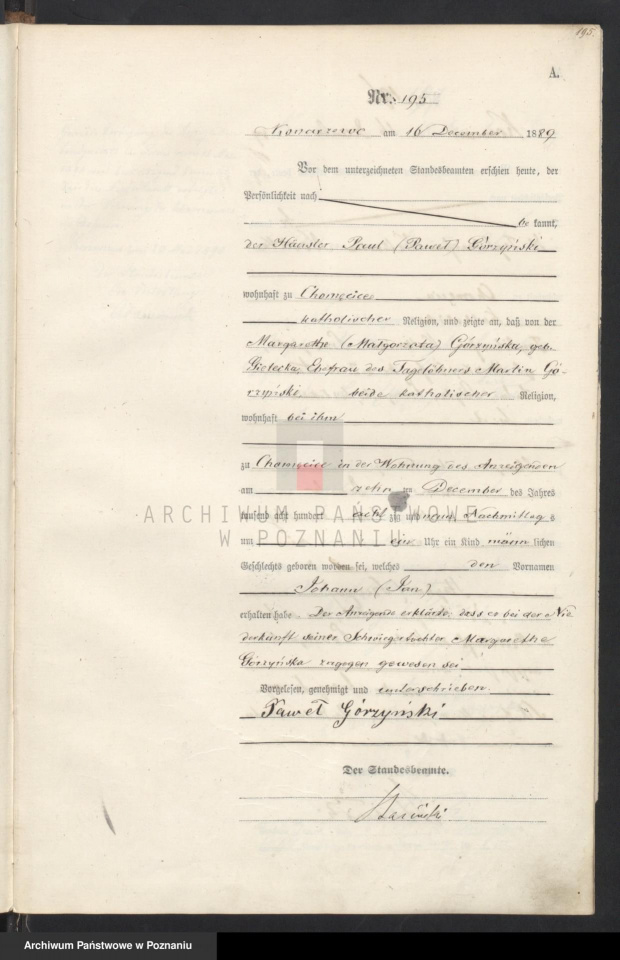 195.
A.
Nr. 195
am 16 December 1889
Vor dem unterzeichneten Standesbeamten erschien heute, der
Persönlichkeit nach
be kannt,
der Häusler Paul (Paweł) Górzyński
wohnhaft zu Chomęcice
katholischer Religion, und zeigte an, daß von der
Margarethe (Małgorzata) Górzyńska, geb.
Ehefrau des Tagelöhners Martin Gó-
rzyński beide katholischer Religion,
wohnhaft bei ihm
zu Chomęcice in der Wohnung des Anzeigenden
am zehn ten December des Jahres
tausend acht hundert acht zig und neun Nachmittag s
um ein Uhr ein Kind männ lichen
Geschlechts geboren worden sei, welches den Vornamen
Johann (Jan)
erhalten habe. Der Anzeigende erklärte, dass er bei der Nie
derkunft seiner Schwiegertochter Margarethe
Górzyńska zugegen gewesen sei
Vorgelesen, genehmigt und unterschrieben
Paweł Górzyński
Der Standesbeamte.
ARCHIWUM PAŃSTWOWE
W POZNANIU
Archiwum Państwowe w Poznaniu